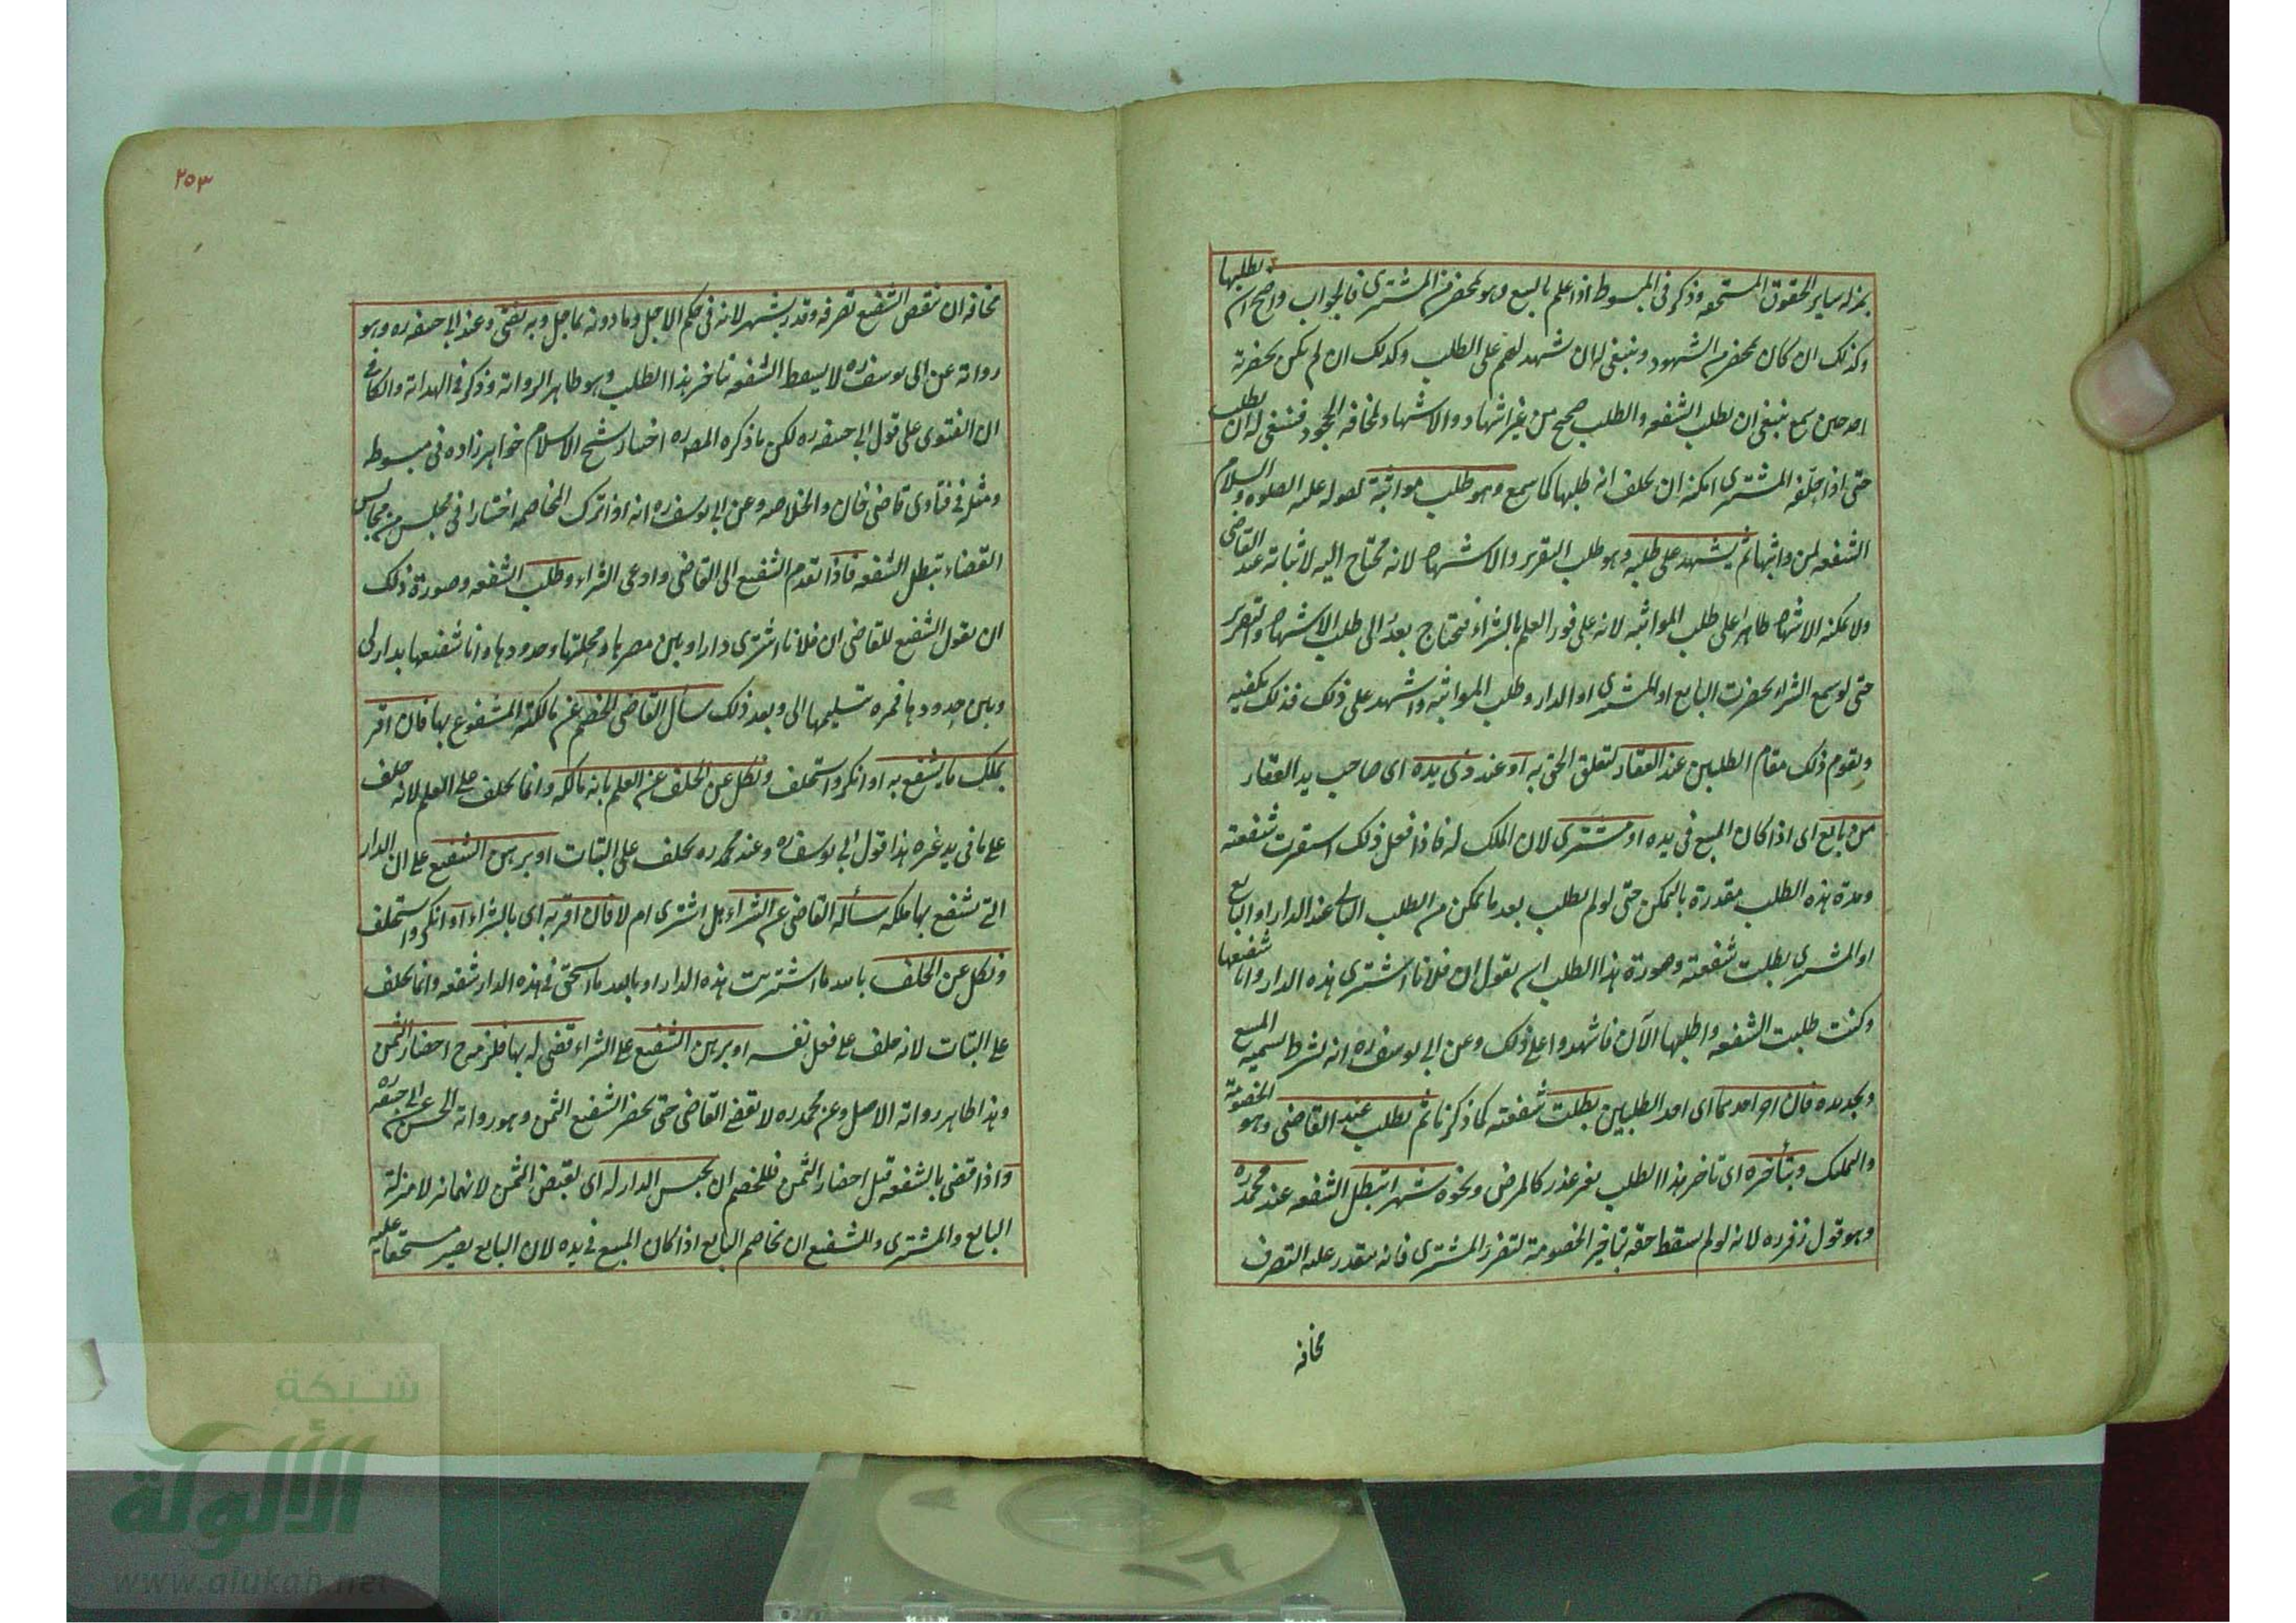 بمنزله ساير الحقوق المستحقه وذكر في المبسوط اذا علم بالبيع وهو بمحضر من المشترى فالجواب واضح ان يطلبها
وكذلك ان كان بمحضر من الشهود وينبغى له ان يشهدهم على الطلب وكذلك ان لم يكن بحضرته
احد حين سمع ينبغى ان يطلب الشفعه والطلب صحيح من غير اشهاد والاشهاد لمخافه الجحود فينبغى له ان يطلب
حتى اذا حلّفه المشترى امكنه ان يحلف انه طلبها كما سمع وهو طلب مواثبة لقوله عليه الصلوه والسلام
الشفعه لمن واثبها ثم يشهد على طلبه وهو طلب التقرير والاشهاد لانه محتاج اليه لاثباته عند القاضى
ولا يمكنه الاشهاد ظاهرا على طلب المواثبه لانه على فور العلم بالشراء فيحتاج بعده الى طلب الاشهاد والتقرير
حتى لو سمع الشراء بحضرت البايع او المشترى او الدار وطلب المواثبه واشهد على ذلك فذلك يكفيه
ويقوم ذلك مقام الطلبين عند العقار لتعلق الحق به او عند ذى يده اى صاحب يد العقار
من بايع اى اذا كان المبيع فى يده او مشترى لان الملك له فاذا فعل ذلك استقرت شفعته
ومدة هذه الطلب مقدرة بالتمكن حتى لو لم يطلب بعد ما تمكن من الطلب الثانى عند الدار او البايع
او المشترى بطلت شفعته وصورة هذا الطلب ان يقول ان فلانا اشترى هذه الدار وانا شفيعها
وكنت طلبت الشفعه واطلبها الآن فاشهدوا على ذلك وعن ابى يوسف ره انه يشترط تسميه المبيع
وتحديده فان اخر احدهما اى احد الطلبين بطلت شفعته كما ذكرنا ثم يطلب عند القاضى وهو الخصومة
والتملك وبتأخره اى تاخر هذا الطلب بغير عذر كالمرض ونحوه شهرا تبطل الشفعه عند محمد ره
وهو قول زفر ره لانه لو لم يسقط حقه بتاخير الخصومة لتضرر المشترى فانه يتعذر عليه التصرف
مخافه
٢٥٣
مخافه ان ينقض الشفيع تصرفه وقدر بشهر لانه فى حكم الاجل وما دونه عاجل وبه يفتى وعند ابى حنيفه ره وهو
روايه عن ابى يوسف ره لا يسقط الشفعه بتاخير هذا الطلب وهو ظاهر الروايه وذكر فى الهدايه والكافى
ان الفتوى على قول ابى حنيفه ره لكن ما ذكره المص ره اختيار شيخ الاسلام خواهر زاده فى مبسوطه
ومثله فى فتاوى قاضى خان والخلاصه وعن ابى يوسف ره انه اذا ترك المخاصمه اختيارا فى مجلس من مجالس
القضاء تبطل الشفعه فاذا تقدم الشفيع الى القاضى وادعى الشراء وطلب الشفعه وصورة ذلك
ان يقول الشفيع للقاضى ان فلانا اشترى دارا وبين مصرها ومحلتها وحدودها وانا شفيعها بدار لى
وبين حدودها فمره بتسليمها الى وبعد ذلك سأل القاضى الخصم عن مالكيه المشفوع بها فان اقر
بملك ما يشفع به او انكر واستحلف ونكل عن الحلف عن العلم بانه مالكه وانما يحلف على العلم لانه حلف
على ما فى يد غيره هذا قول ابى يوسف ره وعند محمد ره يحلف على البتات او برهن الشفيع على ان الدار
التى يشفع بها ملكه سأله القاضى عن الشراء هل اشترى ام لا فان اقر به اى بالشراء او انكر واستحلف
ونكل عن الحلف بالله ما اشتريت هذه الدار او بالله ما استحق فى هذه الدار شفعه وانما يحلف
على البتات لانه حلف على فعل نفسه او برهن الشفيع على الشراء قضى له بها فلزمه ح احضار الثمن
وهذا ظاهر روايه الاصل وعن محمد ره لا يقضى القاضى حتى يحضر الشفيع الثمن وهو روايه الحسن عن ابى حنيفه ره
واذا قضى بالشفعه قبل احضار الثمن فللخصم ان يحبس الدار له اى لقبض الثمن لانهما نزلا منزلة
البايع والمشترى وللشفيع ان يخاصم البايع اذا كان المبيع فى يده لان البايع يصير مستحقا عليه
شبكة
الألوكة
www.alukah.net